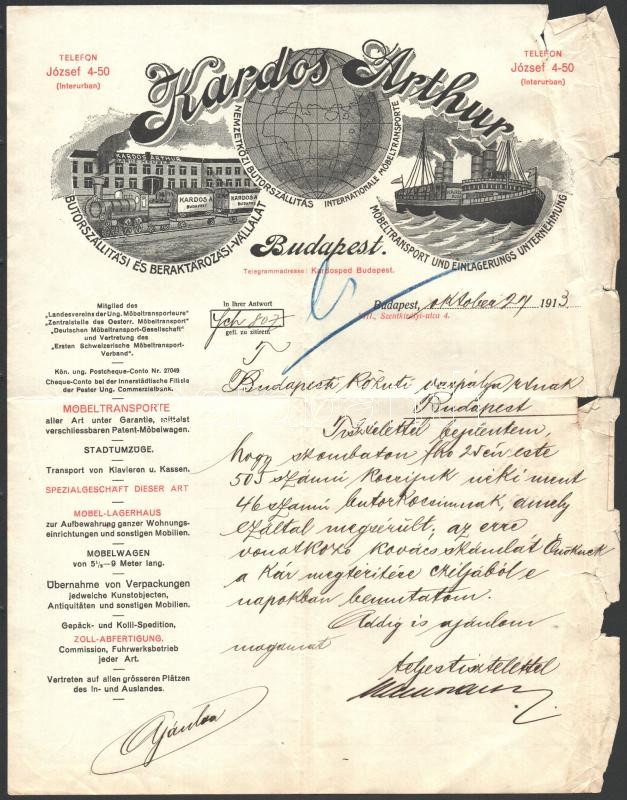 TELEFON
József 4-50
(Interurban)
Kardos Arthur
TELEFON
József 4-50
(Interurban)
NEMZETKÖZI BUTORSZÁLLITÁS
INTERNATIONALE MÖBELTRANSPORTE
KARDOS ARTHUR
KARDOS A
BUDAPEST
KARDOS A
BUDAPEST
BUTORSZÁLLITÁSI ÉS BERAKTÁROZÁSI-VÁLLALAT
MÖBELTRANSPORT UND EINLAGERUNGS UNTERNEHMUNG
Budapest.
Telegrammadresse: Kardosped Budapest.
Mitglied des
"Landesvereins der Ung. Möbeltransporteure"
"Zentralstelle des Oesterr. Möbeltransport"
"Deutschen Möbeltransport-Gesellschaft"
und Vertretung des
"Ersten Schweizerische Möbeltransport-
Verband".
Kön. ung. Postcheque-Conto Nr. 27049.
Cheque-Conto bei der Innerstädtische Filiale
der Pester Ung. Commerzialbank.
MÖBELTRANSPORTE
aller Art unter Garantie, mittelst
verschliessbaren Patent-Möbelwagen.
STADTUMZÜGE.
Transport von Klavieren u. Kassen.
SPEZIALGESCHÄFT DIESER ART
MÖBEL-LAGERHAUS
zur Aufbewahrung ganzer Wohnungs-
einrichtungen und sonstigen Mobilien.
MÖBELWAGEN
von 5½–9 Meter lang.
Übernahme von Verpackungen
jedwelche Kunstobjecten,
Antiquitäten und sonstigen Mobilien.
Gepäck- und Kolli-Spedition,
ZOLL-ABFERTIGUNG.
Commission, Fuhrwerksbetrieb
jeder Art.
Vertreten auf allen grösseren Plätzen
des In- und Auslandes.
In Ihrer Antwort
807
gefl. zu zitiren.
Budapest, oktober 27 1913
VIII., Szentkirályi-utca 4.
T
Budapesti közuti vaspálya
Budapest
Tisztelettel bejelentem,
hogy szombaton f hó 25 én este
505 számú kocsijuk neki ment
46 számú butorkocsimnak, amely
ezáltal megsérült, az erre
vonatkozó kovács számlát Önöknek
a kár megtéritése céljából e
napokban bemutatom.
Addig is ajánlom
magamat
teljes tisztelettel
Ajánlva